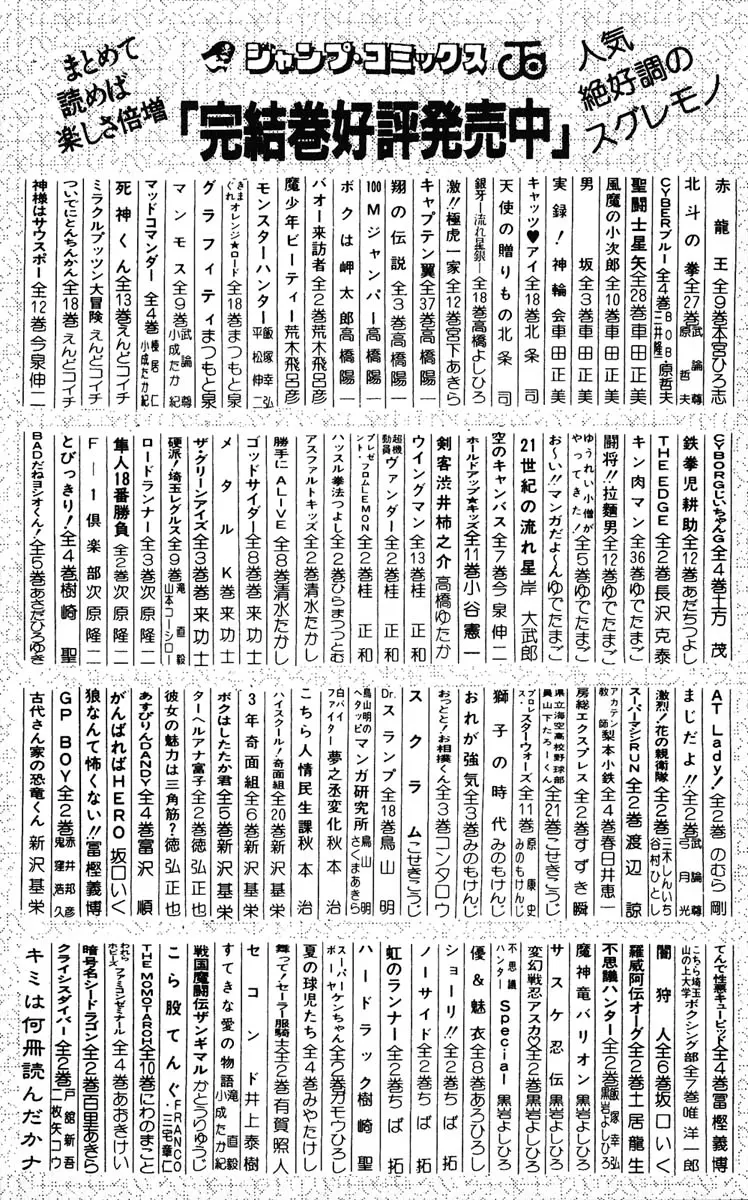 まとめて
読めば
楽しさ倍増
ジャンプ・コミックス
「完結巻好評発売中」
人気
絶好調の
スグレモノ
赤龍王 全9巻 本宮ひろ志
北斗の拳 全27巻 武論尊 原哲夫
CYBERブルー 全4巻 BOB 三井隆一 原哲夫
聖闘士星矢 全28巻 車田正美
風魔の小次郎 全10巻 車田正美
男坂 全3巻 車田正美
実録!神輪会 車田正美
キャッツ♥アイ 全18巻 北条司
天使の贈りもの 北条司
銀牙―流れ星銀― 全18巻 高橋よしひろ
激!!極虎一家 全12巻 宮下あきら
キャプテン翼 全37巻 高橋陽一
翔の伝説 全3巻 高橋陽一
100Mジャンパー 高橋陽一
ボクは岬太郎 高橋陽一
バオー来訪者 全2巻 荒木飛呂彦
魔少年ビーティー 荒木飛呂彦
モンスターハンター 飯塚幸弘 平松伸二
きまぐれオレンジ★ロード 全18巻 まつもと泉
グラフィティ まつもと泉
マンモス 全9巻 武論尊 小成たか紀
マッドコマンダー 全4巻 榛居仁 小成たか紀
死神くん 全13巻 えんどコイチ
ミラクルプッツン大冒険 えんどコイチ
ついでにとんちんかん 全18巻 えんどコイチ
神様はサウスポー 全12巻 今泉伸二
CYBORGじいちゃんG 全4巻 土方茂
鉄拳児耕助 全12巻 あだちつよし
THE EDGE 全2巻 長沢克泰
キン肉マン 全36巻 ゆでたまご
闘将!!拉麵男 全12巻 ゆでたまご
ゆうれい小僧がやってきた! 全5巻 ゆでたまご
お〜い!!マンガだよ〜ん ゆでたまご
21世紀の流れ星 岸大武郎
空のキャンバス 全7巻 今泉伸二
ホールドアップ★キッズ 全11巻 小谷憲一
剣客渋井柿之介 高橋ゆたか
ウイングマン 全13巻 桂正和
超機動員ヴァンダー 全2巻 桂正和
プレゼント・フロムLEMON 全2巻 桂正和
ハッスル拳法つよし 全2巻 ひらまつつとむ
アスファルトキッズ 全2巻 清水たかし
勝手にALIVE 全8巻 清水たかし
ゴッドサイダー 全8巻 巻来功士
メタルK 巻来功士
ザ・グリーンアイズ 全3巻 巻来功士
硬派!埼玉レグルス 全9巻 滝直毅 山本コーシロー
ロードランナー 全3巻 次原隆二
隼人18番勝負 全2巻 次原隆二
F―1倶楽部 次原隆二
とびっきり! 全4巻 樹崎聖
BADだねヨシオくん! 全5巻 あさだひろゆき
AT Lady! 全2巻 のむら剛
まじだよ!! 全2巻 武論尊 弓月光
激烈!花の親衛隊 全2巻 三木しんいち 谷村ひとし
スーパーマシンRUN 全2巻 渡辺諒
アカテン教師梨本小鉄 全4巻 春日井恵一
房総エクスプレス 全2巻 すずき瞬
県立海空高校野球部員山下たろーくん 全21巻 こせきこうじ
プロレス・スターウォーズ 全11巻 原康史 みのもけんじ
獅子の時代 みのもけんじ
おれが強気 全3巻 みのもけんじ
おっとと!お相撲くん 全3巻 コンタロウ
スクラム こせきこうじ
Dr.スランプ 全18巻 鳥山明
鳥山明のヘタッピマンガ研究所 鳥山明 さくまあきら
白バイファイター夢之丞変化 秋本治
こちら人情民生課 秋本治
ハイスクール!奇面組 全20巻 新沢基栄
3年奇面組 全6巻 新沢基栄
ボクはしたたか君 全5巻 新沢基栄
ターヘルアナ富子 全2巻 徳弘正也
彼女の魅力は三角筋? 徳弘正也
あすぴりんDANDY 全4巻 富沢順
がんばればHERO 坂口いく
狼なんて怖くない!! 冨樫義博
GP BOY 全2巻 赤井邦彦 鬼窪浩久
古代さん家の恐竜くん 新沢基栄
てんで性悪キューピッド 全4巻 冨樫義博
こちら埼玉山の上大学ボクシング部 全7巻 唯洋一郎
闇狩人 全6巻 坂口いく
羅威阿伝オーグ 全2巻 土居龍生
不思議ハンター 全2巻 飯塚幸弘 黒岩よしひろ
魔神竜バリオン 黒岩よしひろ
サスケ忍伝 黒岩よしひろ
変幻戦忍アスカ♡ 全2巻 黒岩よしひろ
不思議ハンターSpecial 黒岩よしひろ
優&魅衣 全8巻 あろひろし
ショーリ!! 全2巻 ちば拓
ノーサイド 全2巻 ちば拓
虹のランナー 全2巻 ちば拓
ハードラック 樹崎聖
スーパーボーヤケンちゃん 全2巻 ガモウひろし
夏の球児たち 全4巻 みやたけし
舞って!セーラー服騎士 全2巻 有賀照人
セコンド 井上泰樹
すてきな愛の物語 滝直毅 小成たか紀
戦国魔闘伝ザンギマル かとうりゅうじ
こら股てんぐ FRANCO 三宅華仁
THE MOMOTAROH 全10巻 にわのまこと
われらホビーズ ファミコンゼミナール 全4巻 あおきけい
暗号名シードラゴン 全2巻 百里あきら
クライシスダイバー 全2巻 戸舘新吾 二枚矢コウ
キミは何冊読んだかナ